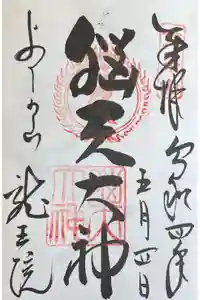 奉拝
令和四年
五月四日
脳天大神
よしの山
龍王院